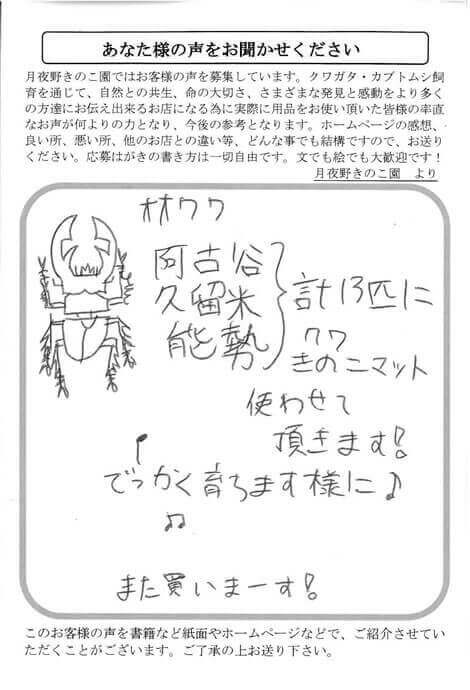 あなた様の声をお聞かせください
月夜野きのこ園ではお客様の声を募集しています。クワガタ・カブトムシ飼
育を通じて、自然との共生、命の大切さ、さまざまな発見と感動をより多く
の方達にお伝え出来るお店になる為に実際に用品をお使い頂いた皆様の率直
なお声が何よりの力となり、今後の参考となります。ホームページの感想、
良い所、悪い所、他のお店との違い等、どんな事でも結構ですので、お送り
ください。応募はがきの書き方は一切自由です。文でも絵でも大歓迎です！
月夜野きのこ園　より
オオクワ
阿古谷
久留米
能勢
計13匹に
クワ
きのこマット
使わせて
頂きます!
でっかく育ちます様に♪
♫
また買いまーす!
このお客様の声を書籍など紙面やホームページなどで、ご紹介させてい
ただくことがございます。ご了承の上お送り下さい。